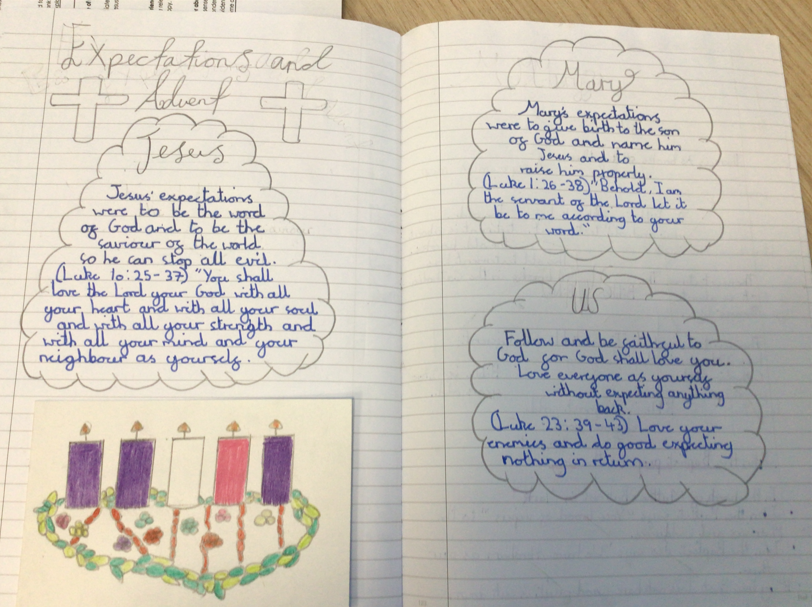 Expectations and
Advent
Jesus
Jesus' expectations
were to be the word
of God and to be the
saviour of the world
so he can stop all evil.
(Luke 10:25-37) "You shall
love the Lord your God with all
your heart and with all your soul
and with all your strength and
with all your mind and your
neighbour as yourself.
Mary
Mary's expectations
were to give birth to the son
of God and name him
Jesus and to
raise him properly.
(Luke 1:26-38) "Behold, I am
the servant of the Lord let it
be to me according to your
word."
US
Follow and be faithful to
God for God shall love you.
Love everyone as yourself
without expecting anything
back.
(Luke 23:39-43) Love your
enemies and do good expecting
nothing in return.